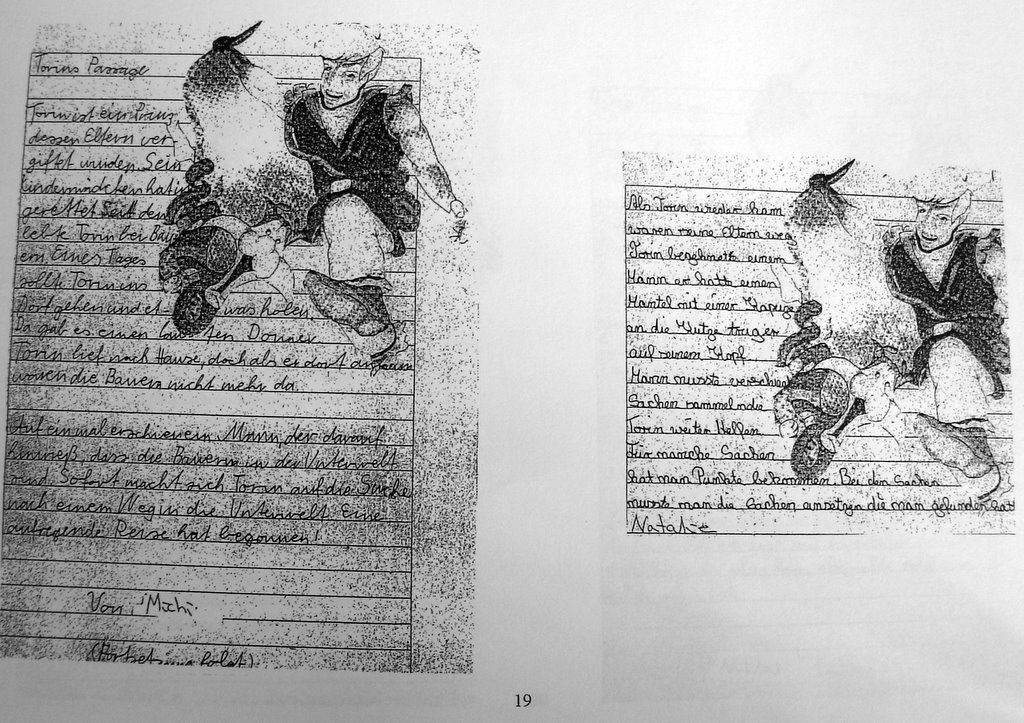 Torins Passage
Torin ist ein Prinz
dessen Eltern ver
giftet wurden. Sein
kindermädchen hat ihn
gerettet Seit dem
lebte Torin bei Bau
ern Eines Tages
sollte Torin ins
Dorf gehen und etwas holen
Da gab es einen lauten Donner
Torin lief nach Hause, doch als er dort
waren die Bauern nicht mehr da.
Auf einmal erschien ein Mann der darauf
hinwieß, dass die Bauern in der Unterwelt
sind. Sofort macht sich Torin auf die Suche
nach einem Weg in die Unterwelt. Eine
aufregende Reise hat begonnen!
Von, Michi
(Fortsetzung folgt)
Als Torin wieder kam
waren seine Eltern weg
Torin begegnete einem
Mann er hatte einen
Mantel mit einer Kapuze
an die Mütze trug er
auf seinem Kopf
Mann musste verschied
Sachen sammeln die
Torin weiter Helfen
Für manche Sachen
hat man Punkte bekommen Bei den Sachen
musste man die Sachen einsetzen die man gefunden hat
Natalie
19